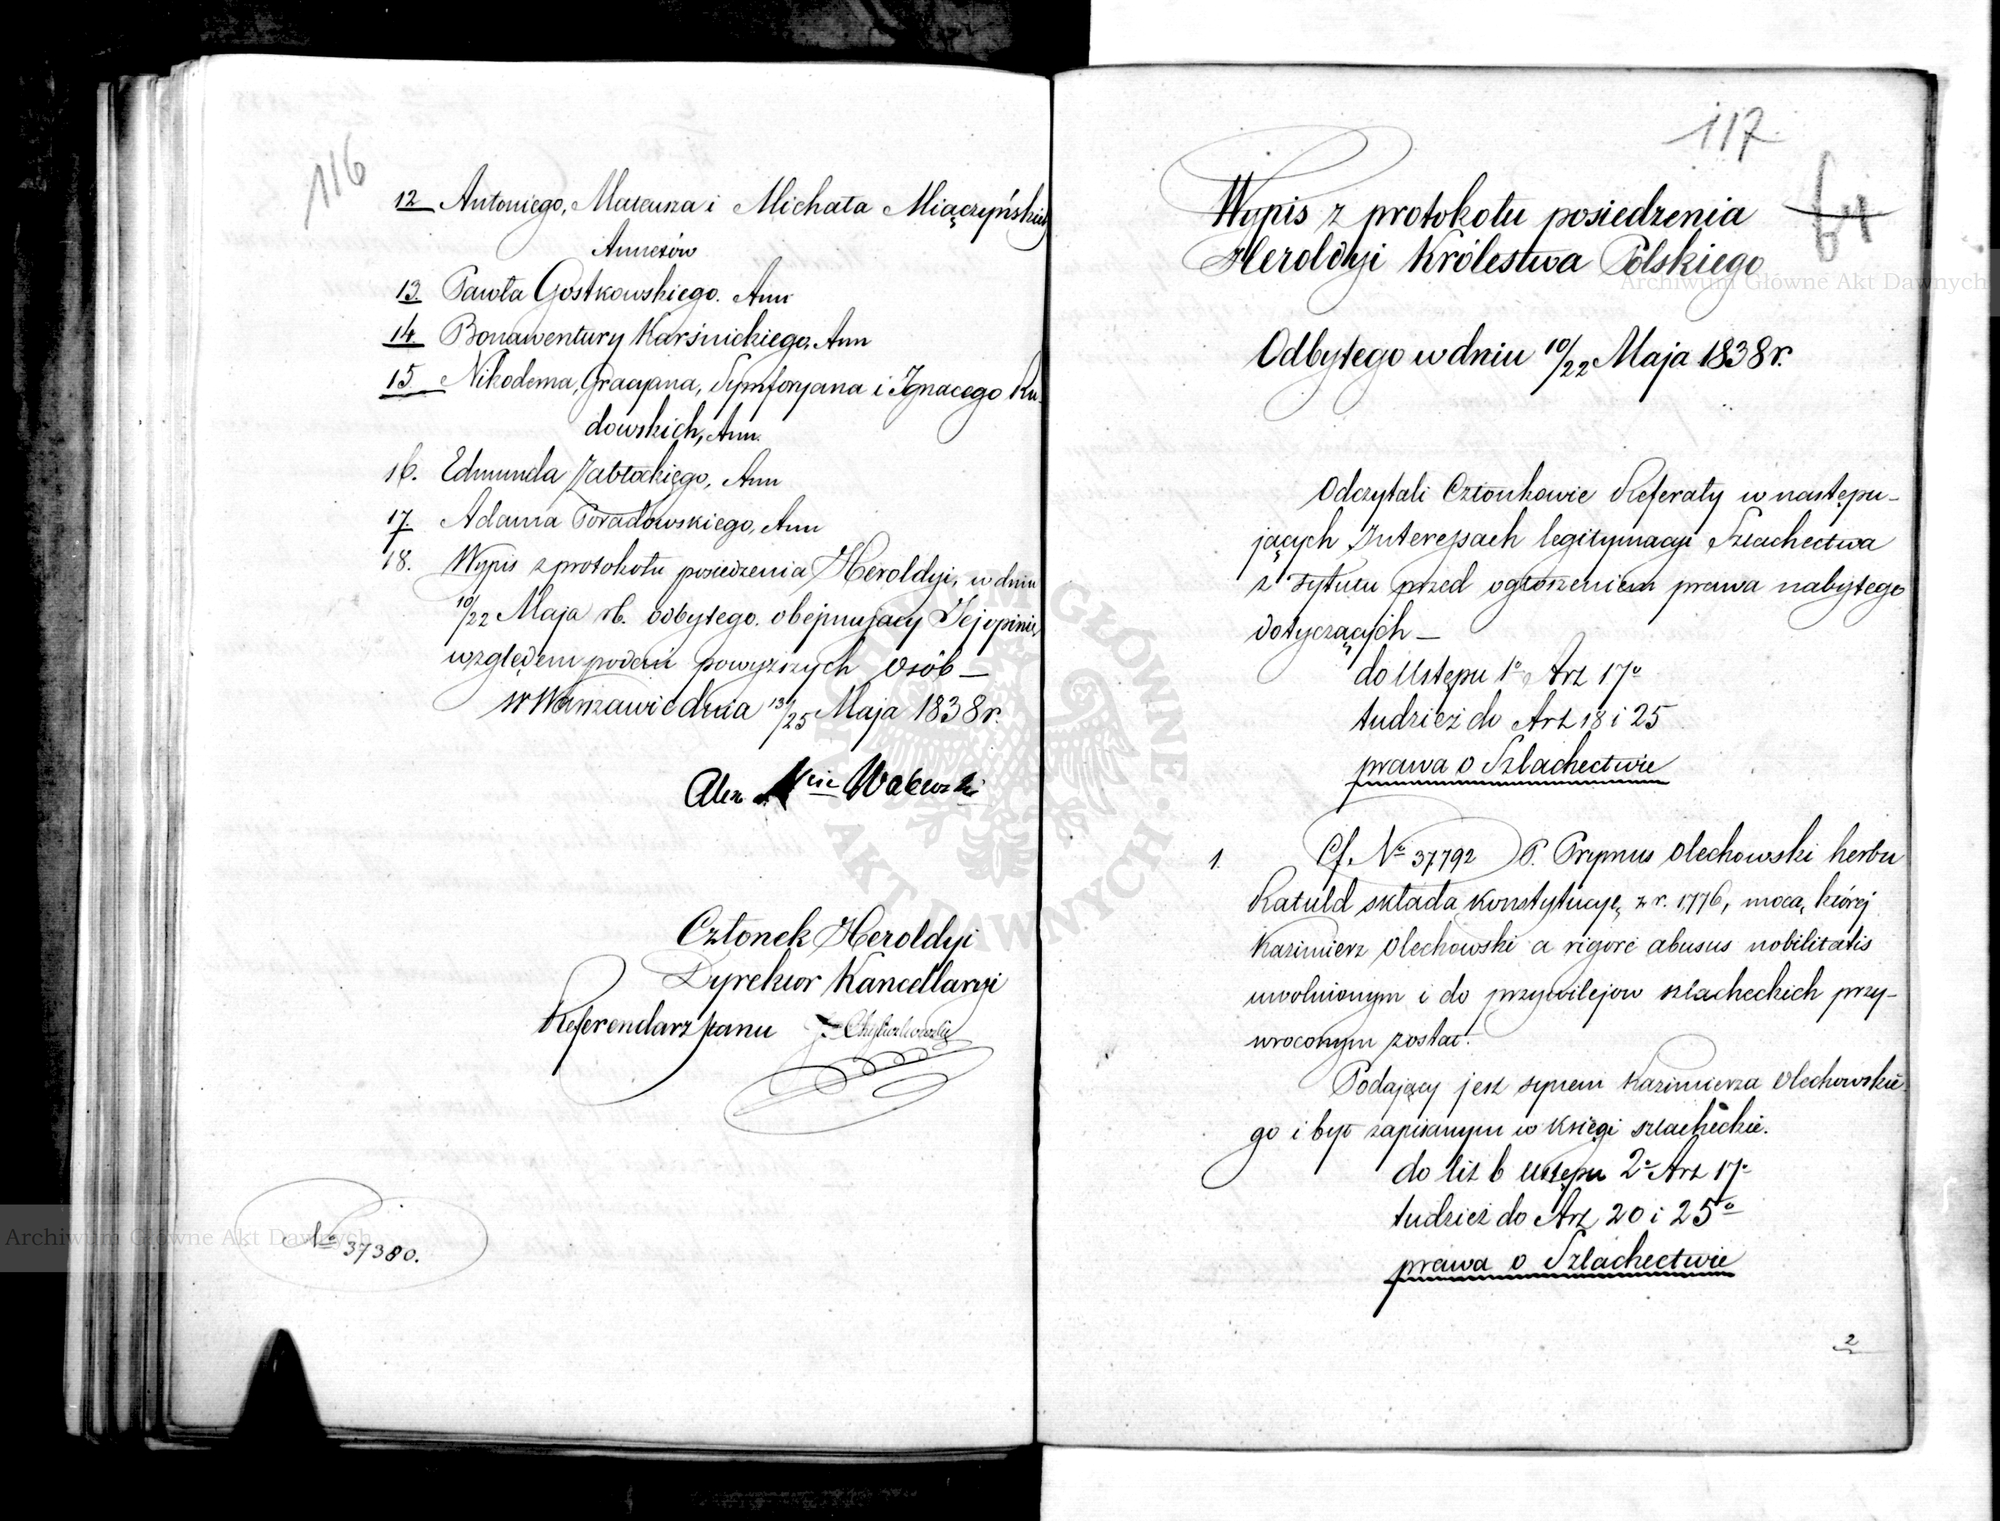 116
12 Antoniego, Mateusza i Michała Miączyńskich
Annexów
13. Pawła Gostkowskiego. Ann
14. Bonawentury Karśnickiego, Ann
15. Nikodema, Gracyana, Symforyana i Ignacego Ru-
dowskich, Ann.
16. Edmunda Zabłockiego, Ann
17. Adama Poradowskiego, Ann
18. Wypis z protokołu posiedzenia Heroldyi, w dniu
10/22 Maja rb. odbytego. obejmujący Jej opinie,
względem podań powyższych Osób —
w Warszawie dnia 13/25 Maja 1838 r.
Alex Walewski
Członek Heroldyi
Dyrektor Kancellaryi
Referendarz stanu
No 37380.
117
64
Wypis z protokołu posiedzenia
Heroldyi Królestwa Polskiego
Odbytego w dniu 10/22 Maja 1838 r.
Odczytali Członkowie Referaty w następu-
jących Interessach legitymacyi Szlachectwa
z tytułu przed ogłoszeniem prawa nabytego
dotyczących —
do Ustępu 1o Art 17o
tudzież do Art 18 i 25
prawa o Szlachectwie
1. Cf. No 37792 P. Prymus Olechowski herbu
Ratuld składa Konstytucyę z r. 1776, mocą, której
Kazimierz Olechowski a rigore abusus nobilitatis
uwolnionym i do przywilejow szlacheckich przy-
wroconym został.
Podający jest synem Kazimierza Olechowskie-
go i był zapisanym w Księgi szlacheckie.
do lit b Ustępu 2o Art 17o
tudzież do Art 20 i 25o
prawa o Szlachectwie
2
Archiwum Główne Akt Dawnych
Archiwum Główne Akt Dawnych
ARCHIWUM GŁÓWNE AKT DAWNYCH